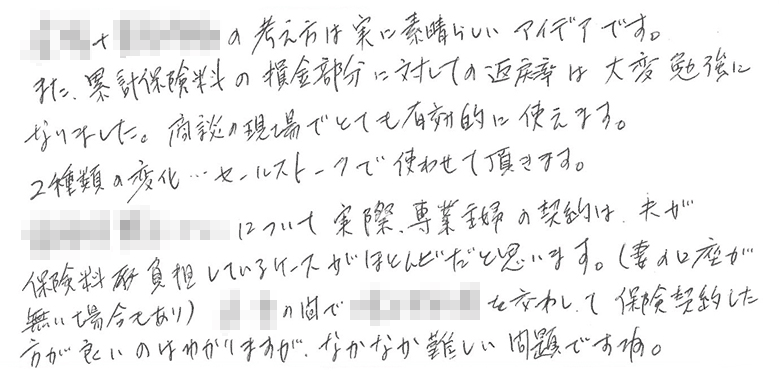 + の考え方は実に素晴らしいアイデアです。
また、累計保険料の損金部分に対しての返戻率は大変勉強に
なりました。商談の現場でとても有効的に使えます。
2種類の変化…セールストークで使わせて頂きます。
について実際、専業主婦の契約は、夫が
保険料を負担しているケースがほとんどだと思います。(妻の口座が
無い場合もあり) の間で を交わして保険契約した
方が良いのはわかりますが、なかなか難しい問題ですね。